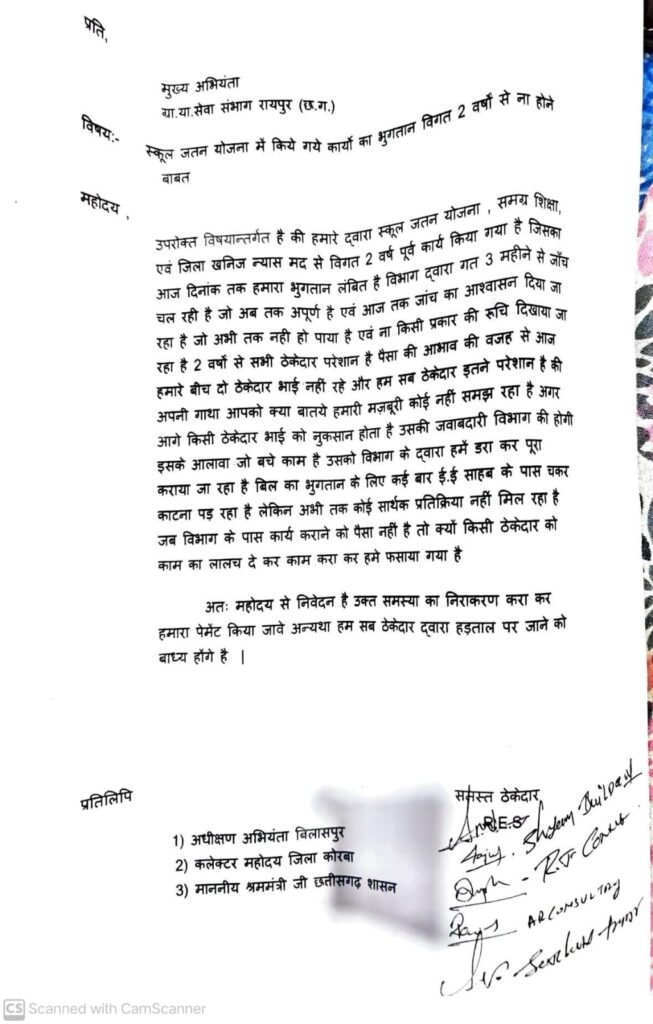 प्रति,
मुख्य अभियंता
ग्रा.या.सेवा संभाग रायपुर (छ.ग.)
विषय:- स्कूल जतन योजना में किये गये कार्यो का भुगतान विगत 2 वर्षो से ना होने
बाबत
महोदय ,
उपरोक्त विषयान्तर्गत है की हमारे द्वारा स्कूल जतन योजना , समग्र शिक्षा,
एवं जिला खनिज न्यास मद से विगत 2 वर्ष पूर्व कार्य किया गया है जिसका
आज दिनांक तक हमारा भुगतान लंबित है विभाग द्वारा गत 3 महीने से जाँच
चल रही है जो अब तक अपूर्ण है एवं आज तक जांच का आश्वासन दिया जा
रहा है जो अभी तक नही हो पाया है एवं ना किसी प्रकार की रूचि दिखाया जा
रहा है 2 वर्षो से सभी ठेकेदार परेशान है पैसा की आभाव की वजह से आज
हमारे बीच दो ठेकेदार भाई नहीं रहे और हम सब ठेकेदार इतने परेशान है की
अपनी गाथा आपको क्या बातये हमारी मज़बूरी कोई नहीं समझ रहा है अगर
आगे किसी ठेकेदार भाई को नुकसान होता है उसकी जवाबदारी विभाग की होगी
इसके आलावा जो बचे काम है उसको विभाग के द्वारा हमें डरा कर पूरा
कराया जा रहा है बिल का भुगतान के लिए कई बार ई.ई साहब के पास चकर
काटना पड़ रहा है लेकिन अभी तक कोई सार्थक प्रतिक्रिया नहीं मिल रहा है
जब विभाग के पास कार्य कराने को पैसा नहीं है तो क्यों किसी ठेकेदार को
काम का लालच दे कर काम करा कर हमे फसाया गया है
अतः महोदय से निवेदन है उक्त समस्या का निराकरण करा कर
हमारा पेमेंट किया जावे अन्यथा हम सब ठेकेदार द्वारा हड़ताल पर जाने को
बाध्य होंगे है |
प्रतिलिपि
1) अधीक्षण अभियंता विलासपुर
2) कलेक्टर महोदय जिला कोरबा
3) माननीय श्रममंत्री जी छत्तीसगढ़ शासन
समस्त ठेकेदार
R.E.S
AR CONSULTRY
CS Scanned with CamScanner